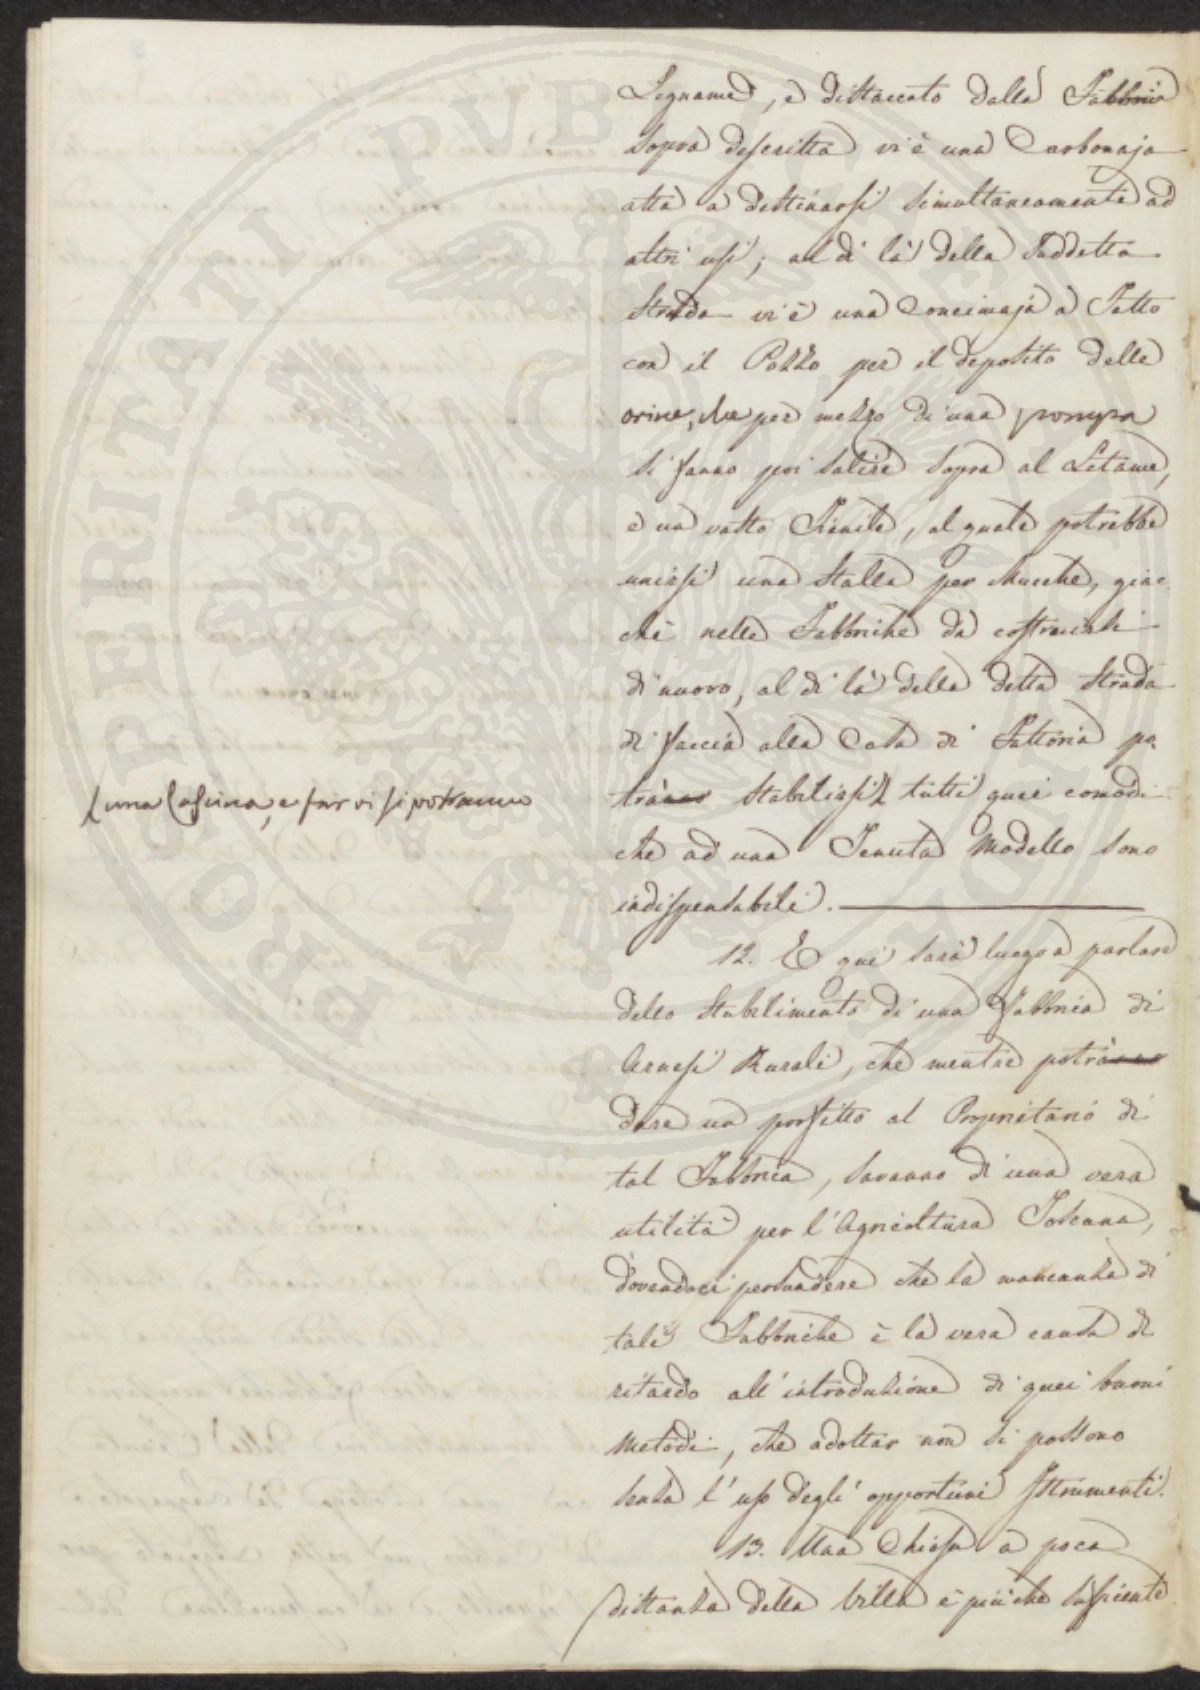 Legname, e distaccato dalla Fabbrica
sopra descritta vi è una Carbonaja
atta a destinarsi simultaneamente ad
altri usi; al di là della suddetta
Strada vi è una Concimaja a Tetto
con il Pozzo per il deposito delle
orine, che per mezzo di una pompa
si fanno poi salire sopra al Letame,
e un vasto Fienile, al quale potrebbe
unirsi una Stalla per Mucche, giac
chè nelle Fabbriche da costruirsi
di nuovo, al di là della detta Strada
di faccia alla Casa di Fattoria po-
trà stabilirsi tutti quei comodi
che ad una Tenuta Modello sono
indispensabili.
una Cascina, e farvi si potranno
12. E qui sarà luogo a parlare
dello Stabilimento di una Fabbrica di
Arnesi Rurali, che mentre potrà
dare un profitto al Proprietario di
tal Fabbrica, saranno di una vera
utilità per l'Agricoltura Toscana,
dovendoci persuadere che la mancanza di
tali Fabbriche è la vera causa di
ritardo all'introduzione di quei buoni
Metodi, che adottar non si possono
senza l'uso degli opportuni Istrumenti.
13. Una Chiesa a poca
distanza della Villa è più che suficiente
PROSPERITATI PUBLICAE